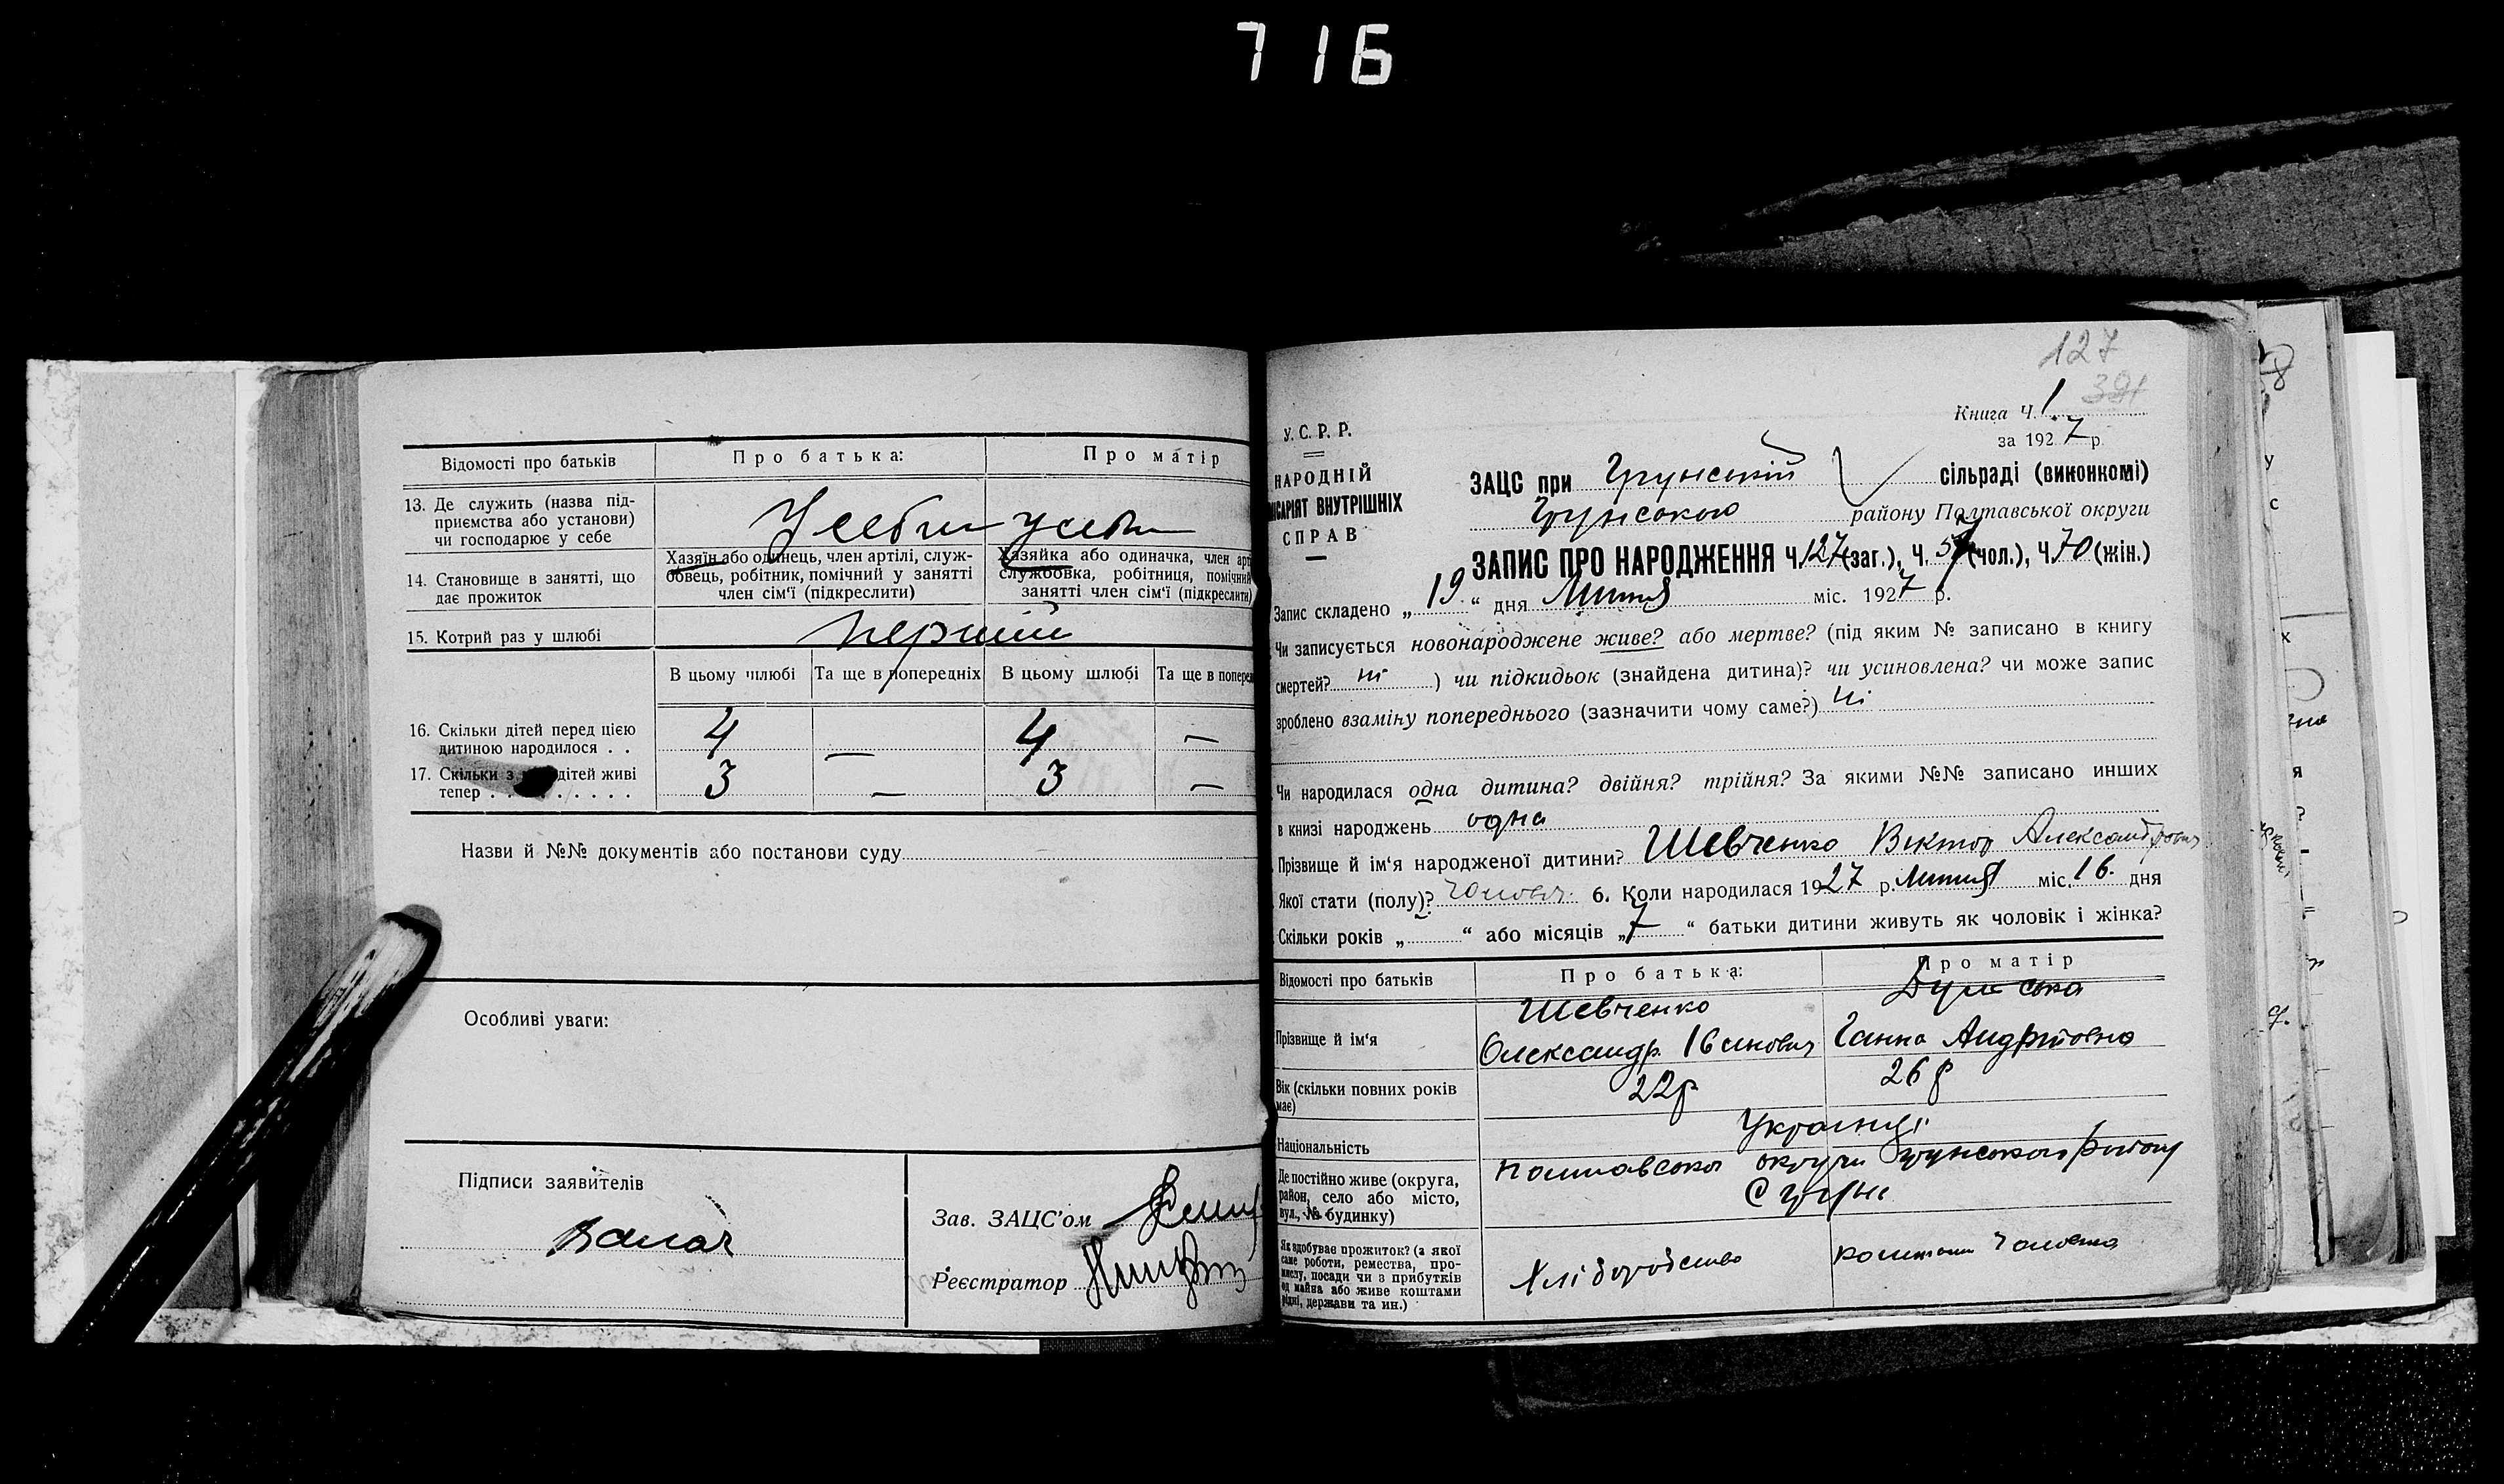 716
Відомості про батьків
Про батька:
Про матір
13. Де служить (назва під-
приємства або установи)
чи господарює у себе
У себе у себе
14. Становище в занятті, що
дає прожиток
Хазяїн або одинець, член артілі, служ-
бовець, робітник, помічний у занятті
член сім'ї (підкреслити)
Хазяйка або одиначка, член арт
службовка, робітниця, помічний
занятті член сім'ї (підкреслити)
15. Котрий раз у шлюбі
перший
В цьому шлюбі
Та ще в попередніх
В цьому шлюбі
Та ще в поперед
16. Скільки дітей перед цією
дитиною народилося . .
4 — 4 —
17. Скільки з дітей живі
тепер . . . . . . . . .
3 — 3 —
Назви й №№ документів або постанови суду
Особливі уваги:
Підписи заявителів
Зав. ЗАЦС'ом
Реєстратор
127
391
Книга Ч. 1.
за 1927 р.
У. С. Р. Р.
НАРОДНІЙ
ІСАРІЯТ ВНУТРІШНІХ
СПРАВ
ЗАЦС при Грунській сільраді (виконкомі)
Грунського району Полтавської округи
ЗАПИС ПРО НАРОДЖЕННЯ Ч. 127 (заг.), Ч. 57 (чол.), Ч. 70 (жін.)
Запис складено „ 19 “ дня Липня міс. 1927 р.
Чи записується новонароджене живе? або мертве? (під яким № записано в книгу
смертей? ні ) чи підкидьок (знайдена дитина)? чи усиновлена? чи може запис
зроблено взаміну попереднього (зазначити чому саме?) ні
Чи народилася одна дитина? двійня? трійня? За якими №№ записано инших
в книзі народжень одна
Прізвище й ім'я народженої дитини? Шевченко Віктор Александрович
Якої стати (полу)? чоловіч. 6. Коли народилася 1927 р. Липня міс. 16. дня
Скільки років „ “ або місяців „ 7 “ батьки дитини живуть як чоловік і жінка?
Відомості про батьків
Про батька:
Про матір
Прізвище й ім'я
Шевченко
Олександр Іванович
Ганна Андріївна
Вік (скільки повних років
має)
22 р
26 р
Національність
Українці
Де постійно живе (округа,
район, село або місто,
вул., № будинку)
Полтавської округи Грунського району
с Грунь
Як здобуває прожиток? (з якої
саме роботи, ремества, про-
мислу, посади чи з прибутків
од майна або живе коштами
рідні, держави та ин.)
Хліборобство
коштами чоловіка